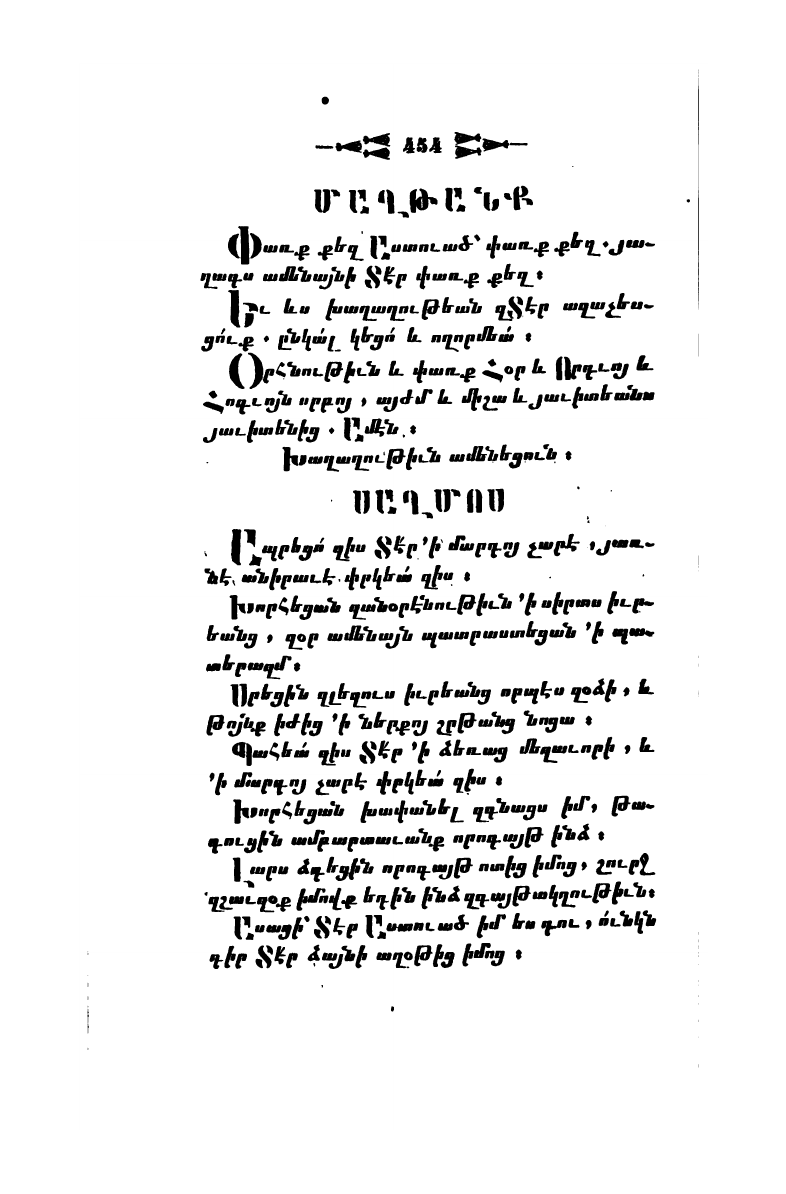 454
ՄԱՂԹԱՆՔ
Փառք քեզ Աստուած՝ փառք քեզ . յա-
ղագս ամենայնի Տէր փառք քեզ ։
Եւ ևս խաղաղութեան զՏէր աղաչես-
ցո՛ւք . ընկա՛լ կեցո՛ և ողորմեա՛ ։
Օրհնութիւն և փառք Հօր և Որդւոյ և
Հոգւոյն սրբոյ , այժմ և միշտ և յաւիտեանս
յաւիտենից . Ամէն ։
Խաղաղութիւն ամենեցուն ։
ՍԱՂՄՈՍ
Ապրեցո՛ զիս Տէր ՚ի մարդոյ չարէ , յառ-
նէ անիրաւէ փրկեա՛ զիս ։
Խորհեցան զանօրէնութիւն ՚ի սիրտս իւր-
եանց , զօր ամենայն պատրաստեցան ՚ի պա-
տերազմ ։
Սրեցին զլեզուս իւրեանց որպէս զօձի , և
թոյնք իժից ՚ի ներքոյ շրթանց նոցա ։
Պահեա՛ զիս Տէր ՚ի ձեռաց մեղաւորի , և
՚ի մարդոյ չարէ փրկեա՛ զիս ։
Խորհեցան խափանել զգնացս իմ , թա-
գուցին ամբարտաւանք որոգայթ ինձ ։
Լարս ձգեցին որոգայթ ոտից իմոց , շուրջ
զշաւղօք իմովք եդին ինձ զգայթակղութիւն ։
Ասացի՝ Տէր Աստուած իմ ես դու , ո՛ւնկն
դիր Տէր ձայնի աղօթից իմոց ։